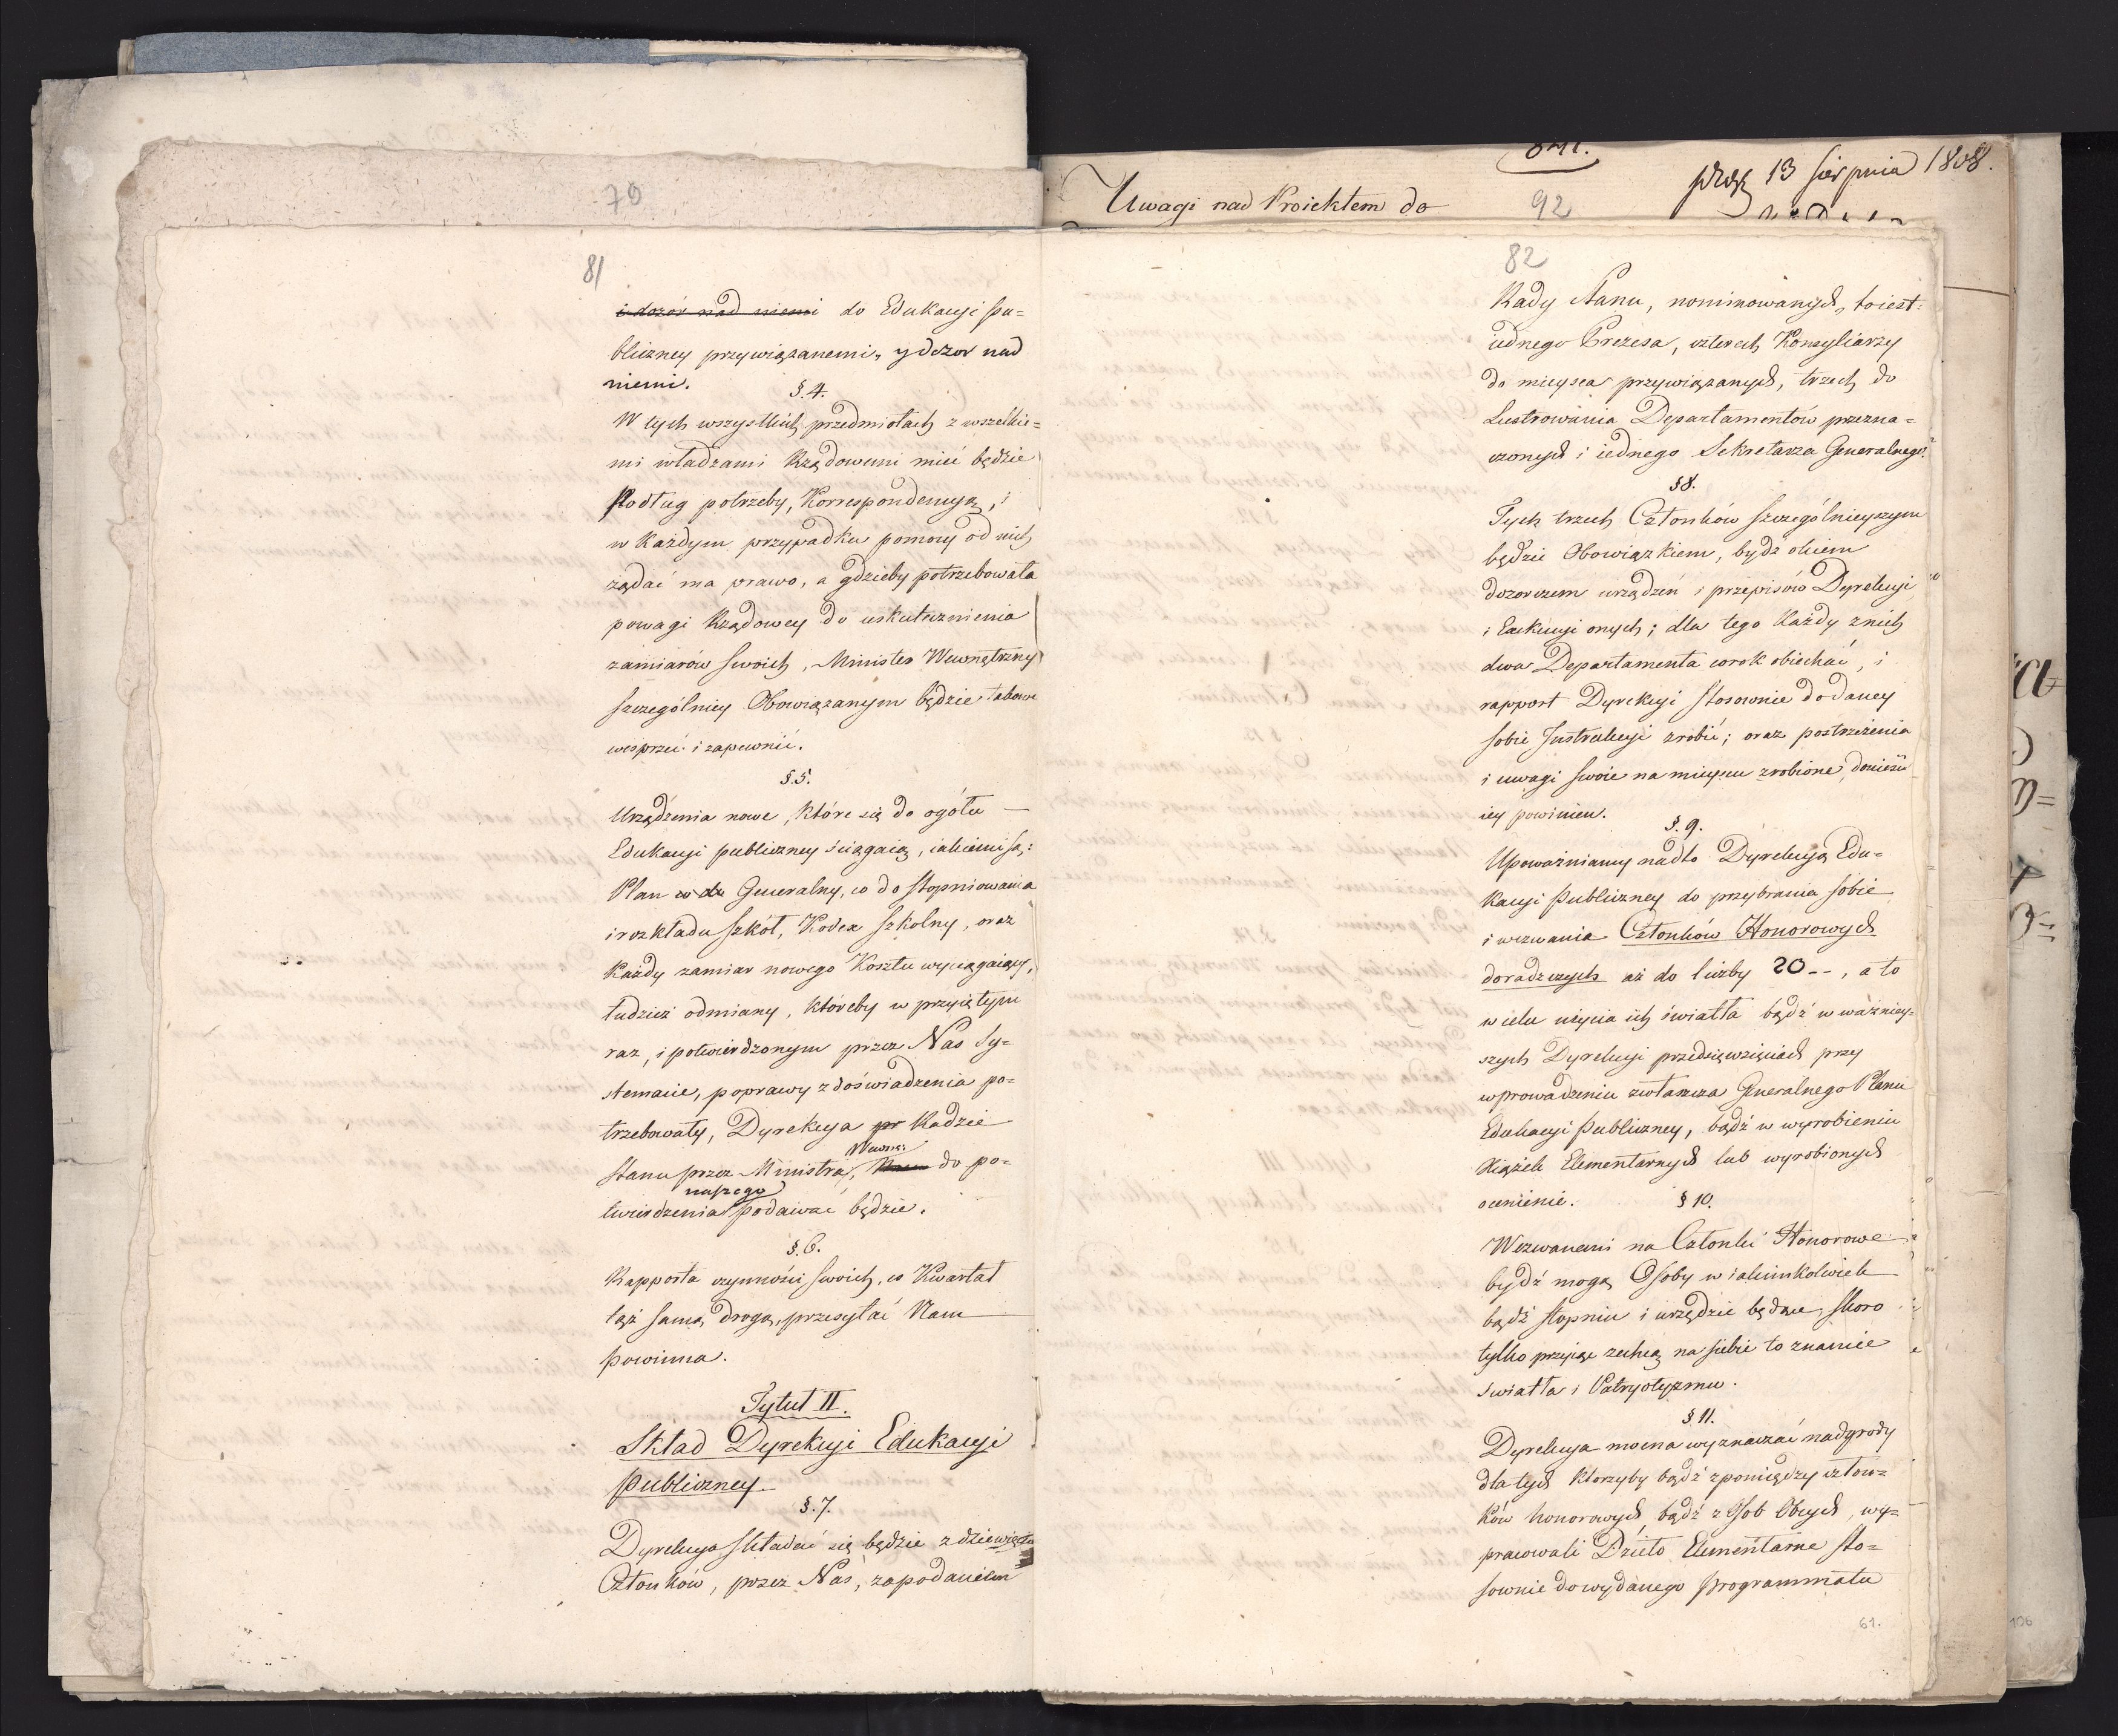 79
81
i dozór nad niemi do Edukacyi Pu=
bliczney przywiązanemi, y dozor nad
niemi.
§. 4.
W tych wszystkich przedmiotach z wszelkie=
mi władzami Rządowemi mieć będzie
Podług potrzeby, Korrespondencyą, i
w każdym przypadku pomocy od nich
żądać ma prawo, a gdzieby potrzebowała
powagi Rządowey do uskutecznienia
zamiarów swoich, Minister Wewnętrzny
szczególniey Obowiązanym będzie takowe
wesprzeć i zapewnić.
§. 5.
Urządzenia nowe, które się do ogółu —
Edukacyi publiczney ściągaią, iakiemi są:
Plan co do Generalny, co do stopniowania
i rozkładu szkół, Kodex szkolny, oraz
każdy zamiar nowego Kosztu wyciągaiący,
tudzież odmiany, któreby w przyiętym
raz, i potwierdzonym przez Nas Sy=
stemacie, poprawy z doświadzenia po=
trzebowały, Dyrekcya pr Radzie
Stanu przez Ministra, Wewnę: do po=
twierdzenia naszego podawać będzie.
§. 6.
Rapporta czynności swoich, co Kwartał
tąż samą drogą, przesyłać Nam
powinna.
Tytuł II.
Skład Dyrekcyi Edukacyi
Publiczney.
§. 7.
Dyrekcya składać się będzie z dziewięciu
Członków, przez Nas, za podaniem
Uwagi nad Proiektem do
92
13 sierpnia 1808.
82
Rady Stanu, nominowanych, toiest:
iednego Prezesa, czterech Konsyliarzy
do mieysca przywiązanych, trzech do
Lustrowania Departamentów przezna=
czonych i iednego Sekretarza Generalnego.
§ 8.
Tych trzech Członków szczególnieyszym
będzie Obowiązkiem, bydź okiem
dozorczem urządzeń i przepisów Dyrekcyi
i Exekucyi onych; dla tego każdy z nich
dwa Departamenta corok obiechać, i
rapport Dyrekcyi stosownie do daney
sobie Instrukcyi zrobić; oraz postrzeżenia
i uwagi swoie na mieyscu zrobione donieść
iey powinien.
§. 9.
Upoważniamy nadto Dyrekcyą Edu=
kacyi Publiczney do przybrania sobie
i wezwania Członków Honorowych
doradczych aż do liczby 20 --, a to
w celu użycia ich światła bądź w ważniey=
szych Dyrekcyi przedsięwzięciach przy
wprowadzeniu zwłaszcza Generalnego Planu
Edukacyi Publiczney, bądź w wyrobieniu
Xiążek Elementarnych lub wyrobionych
ocenienie.
§ 10.
Wezwanemi na Członki Honorowe
bydź mogą Osoby w iakimkolwiek
bądź stopniu i urzędzie będące, skoro
tylko przyiąć zechcą na siebie to znamie
światła i Patryotyzmu.
§ 11.
Dyrekcya mocna wyznaczać nadgrody
dla tych którzyby bądź z pomiędzy człon=
ków honorowych bądź z Osob Obcych, wy=
pracowali Dzieło Elementarne sto=
sownie do wydanego programmatu
61.
106